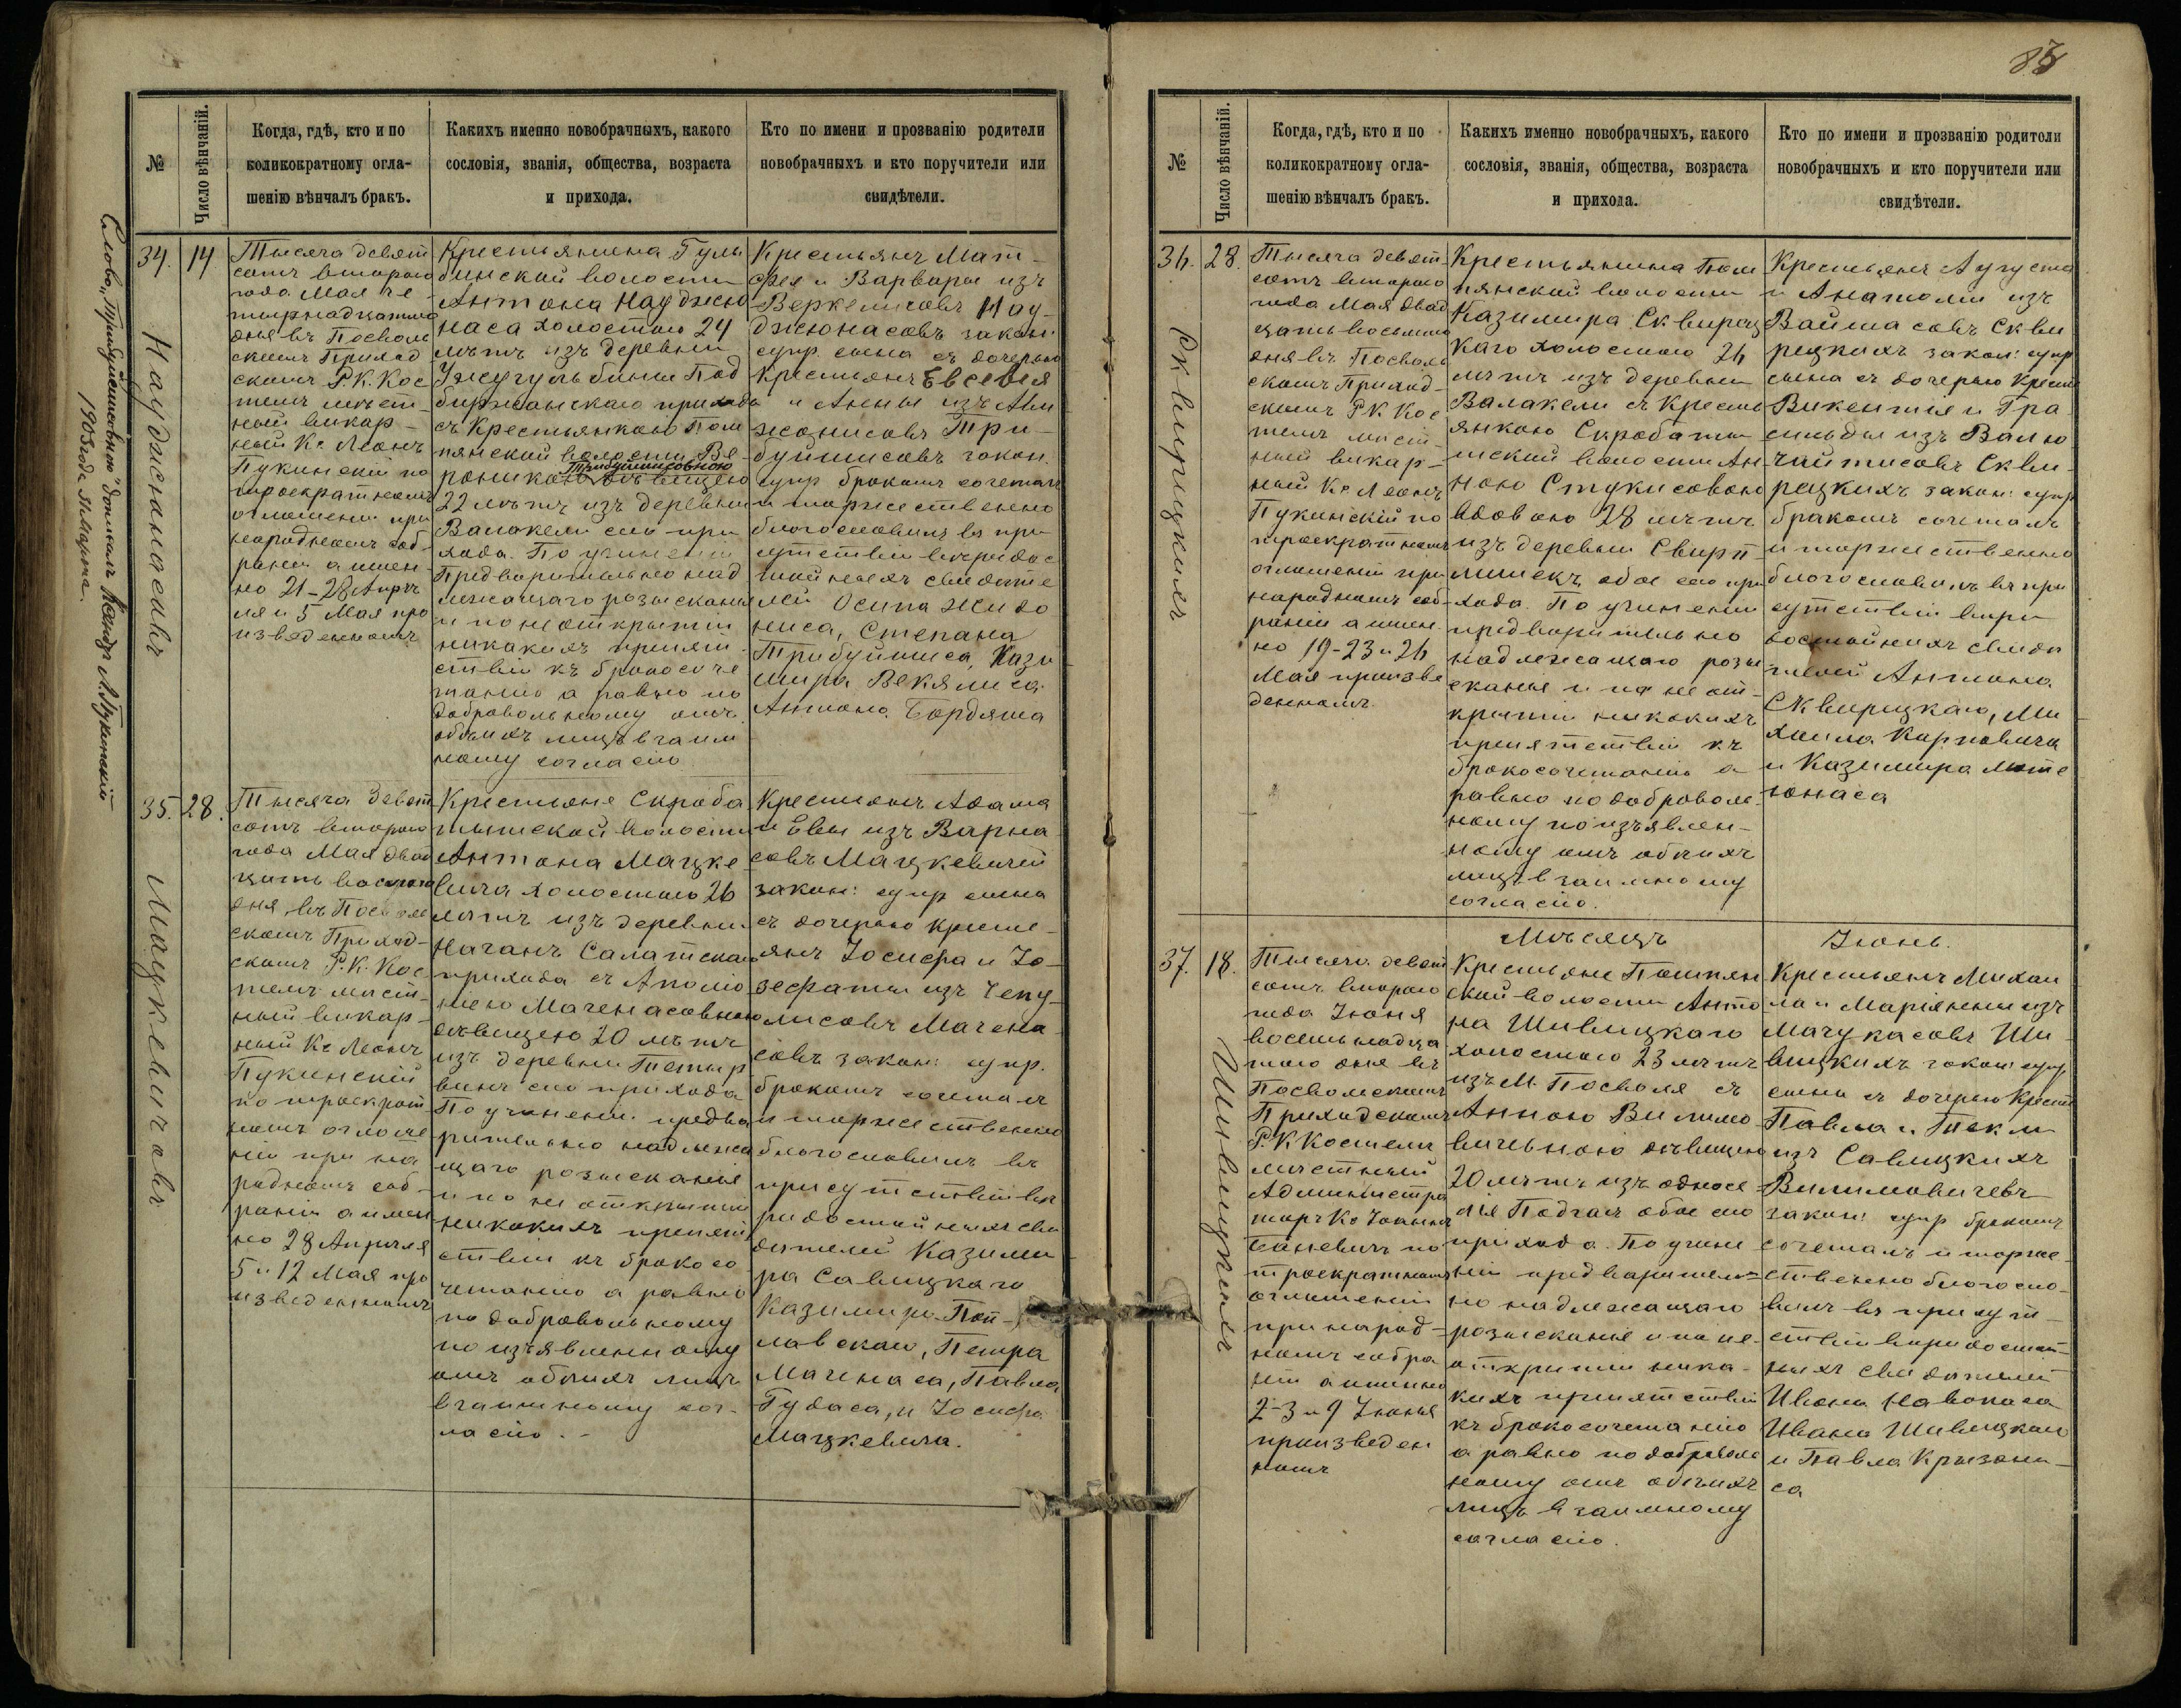 83
№
Число вѣнчаній.
Когда, гдѣ, кто и по
коликократному огла-
шенію вѣнчалъ бракъ.
Какихъ именно новобрачныхъ, какого
сословія, званія, общества, возраста
и прихода.
Кто по имени и прозванію родители
новобрачныхъ и кто поручители или
свидѣтели.
Слово „Трибуйшисовною" дописалъ Ксендзъ Л. Пукинскій
1903 года Марта.
34.
14
Науджюнасъ
Тысяча девят
сотъ второго
года Мая че
тырнадцатаго
дня въ Посволь
скомъ Приход
скомъ Р.К. Кос
телѣ мѣст-
ный викар-
ный Кс Леонъ
Пукинскій по
троекратномъ
оглашеніи при
народномъ соб-
раніи а имен-
но 21-28 Апрѣ
ля и 5 Мая про
изведенномъ
Крестьянина Гуль
бинской волости
Антона Науджю
наса холостого 24
лѣтъ изъ деревни
Ужугульбини Под
биржанскаго прихода
съ Крестьянкою Пом
пянской волости Ве
роникою Трибуйшисовною дѣвицею
22 лѣтъ изъ деревни
Валакели сего при
хода. По учиненіи
Предварительно над
лежащаго розысканія
и по не открытіи
никакихъ препят
ствій къ бракосоче
танію а равно по
добровольному отъ
обѣихъ лицъ взаим
ному согласію
Крестьянъ Мат-
фея и Варвары изъ
Веркелисовъ Нау-
джюнасовъ закон:
супр. сына съ дочерью
Крестьянъ Евсевія
и Анны изъ Али
жонисовъ Три-
буйшисовъ закон.
супр бракомъ сочеталъ
и торжественно
благословилъ въ при
сутствіи вѣридос
тойныхъ свидѣте
лей Осипа Жидо
ниса, Степана
Трибуйшиса, Кази
мира Векялиса
Антона Бордяша
35.
28.
Мацкевичовъ
Тысяча девят
сотъ второго
года Мая двад
цать восьмого
дня въ Посволь
скомъ Приход-
скомъ Р.К. Кос
телѣ мѣст-
ный викар-
ный Кс Леонъ
Пукинскій
по троекрат
номъ оглаше
ніи при на
родномъ соб-
раніи а имен
но 28 Апрѣля
5 и 12 Мая про
изведенномъ
Крестьяне Скроба
тышской волости
Антона Мацке
вича холостого 26
лѣтъ изъ деревни
Начанъ Салатскаго
прихода съ Аполо
ніею Маченасовною
дѣвицею 20 лѣтъ
изъ деревни Тетир
винъ сего прихода
По учиненіи предва
рительно надлежа
щаго розысканія
и по не открытіи
никакихъ препят
ствій къ бракосо
четанію а равно
по добровольному
по изъявленному
отъ обѣихъ лицъ
взаимному сог-
ласію.-
Крестьянъ Адама
и Евы изъ Варна
совъ Мацкевичей
закон: супр сына
съ дочерью кресть-
янъ Іосифа и Іо-
зефаты изъ Чепу-
лисовъ Мачена
совъ закон: супр.
бракомъ сочеталъ
и торжественно
благословилъ въ
присутствіи вѣ
ридостойныхъ сви
дѣтелей Казими
ра Савицкаго
Казимира Поп-
лавскаго, Петра
Маченаса, Павла
Гудаса, и Іосифа
Мацкевича.
№
Число вѣнчаній.
Когда, гдѣ, кто и по
коликократному огла-
шенію вѣнчалъ бракъ.
Какихъ именно новобрачныхъ, какого
сословія, званія, общества, возраста
и прихода.
Кто по имени и прозванію родители
новобрачныхъ и кто поручители или
свидѣтели.
36.
28.
Сквирицкихъ
Тысяча девят-
сотъ второго
года Мая двад
цать восьмого
дня въ Посволь
скомъ Приход-
скомъ Р К Кос
телѣ мѣст-
ный викар-
ный Кс Леонъ
Пукинскій по
троекратномъ
оглашеніи при
народномъ соб-
раніи а имен
но 19-23 и 26
Мая произве
денномъ.
Крестьянина Пом
пянской волости
Казимира Сквириц
каго холостого 26
лѣтъ изъ деревни
Валакели съ Кресть
янкою Скробаты
шской волости Ан
ною Стукисовою
вдовою 28 лѣтъ
изъ деревни Свирп
лишекъ обое сего при
хода. По учиненіи
предварительно
надлежащаго розы
сканія и по не от-
крытіи никакихъ
препятствій къ
бракосочетанію а
равно по доброволь
ному по изъявлен-
ному отъ обѣихъ
лицъ взаимному
согласію.
Крестьянъ Августа
и Анатоліи изъ
Вайшасовъ Скви
рицкихъ закон: супр
сына съ дочерью Крест
Викентія и Гра
сильды изъ Валю
чайтисовъ Скви-
рицкихъ закон: супр
бракомъ сочеталъ
и торжественно
благословилъ въ при
сутствіи вѣри
достойныхъ свидѣ
телей Антона
Сквирицкаго, Ми
хаила Карповича
и Казимира Мате
юнаса
Мѣсяцъ Іюнь.
37.
18.
Шивицкихъ
Тысяча девят
сотъ второго
года Іюня
восемьнадца
таго дня въ
Посвольскомъ
Приходскомъ
Р. К Костелѣ
мѣстный
Администра
торъ Кс Іоаннъ
по
троекратномъ
оглашеніи
при народ-
номъ собра
ніи а именно
2-3 и 9 Іюня
произведен
номъ
Крестьяне Помпян
ской волости Анто
на Шивицкаго
холостого 23 лѣтъ
изъ М. Посволя съ
Анною Вилимо
вичевною дѣвицею
20 лѣтъ изъ односе
лія Подгай обое сего
прихода. По учине
ніи предваритель
но надлежащаго
розысканія и по не
открытіи ника-
кихъ препятствій
къ бракосочетанію
а равно по доброволь
ному отъ обѣихъ
лицъ взаимному
согласію.
Крестьянъ Михаи
ла и Маріянны изъ
Мачукасовъ Ши
вицкихъ закон: супр
сына съ дочерью Крест
Павла и Текли
изъ Савицкихъ
Вилимовичевъ
закон: супр бракомъ
сочеталъ и торже
ственно благосло-
вилъ въ присут-
ствіи вѣридостой
ныхъ свидѣтелей
Ивана Наво
Ивана Шивицкаго
и Павла Крызани-
са